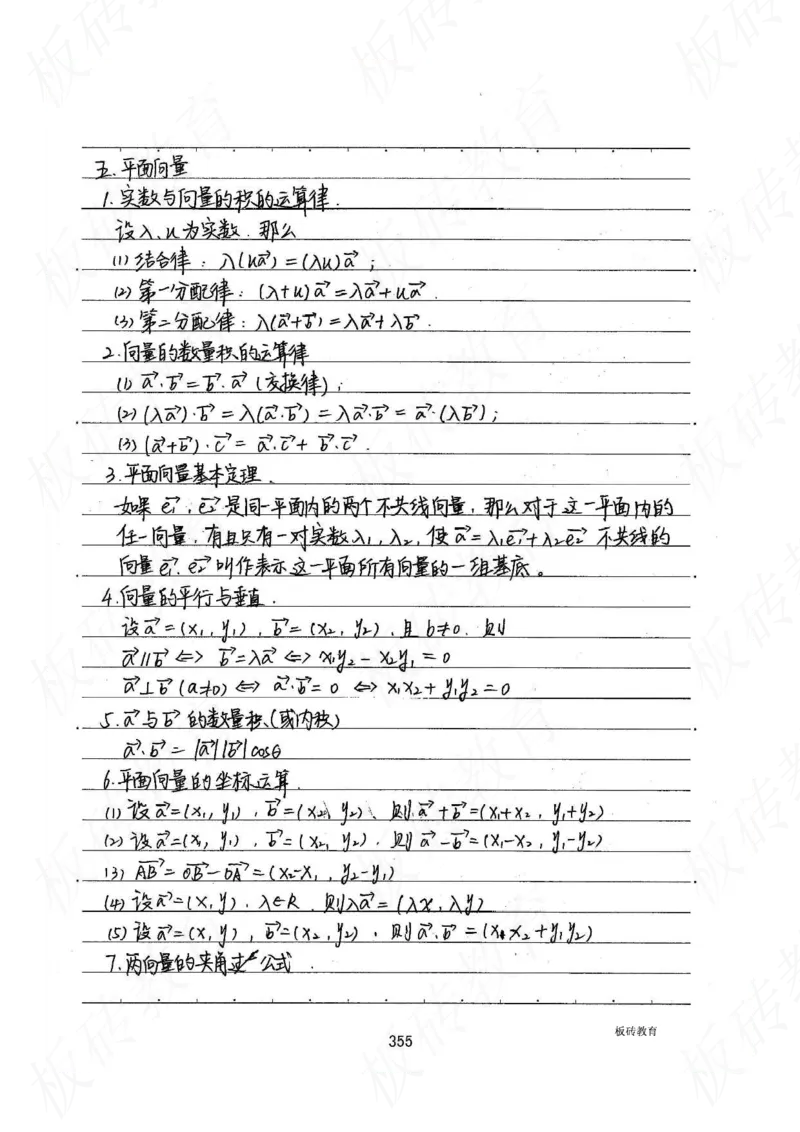 五、平面向量
1.实数与向量的积的运算律.
设λ、u为实数.那么
(1)结合律:λ(ua⃗)=(λu)a⃗;
(2)第一分配律:(λ+u)a⃗=λa⃗+ua⃗.
(3)第二分配律:λ(a⃗+b⃗)=λa⃗+λb⃗.
2.向量的数量积的运算律
(1) a⃗·b⃗=b⃗·a⃗(交换律);
(2)(λa⃗)·b⃗=λ(a⃗·b⃗)=λa⃗·b⃗=a⃗·(λb⃗);
(3)(a⃗+b⃗)·c⃗=a⃗·c⃗+b⃗·c⃗.
3.平面向量基本定理.
如果e₁⃗,e₂⃗是同一平面内的两个不共线向量,那么对于这一平面内的
任一向量,有且只有一对实数λ₁,λ₂,使a⃗=λ₁e₁⃗+λ₂e₂⃗ 不共线的
向量e₁⃗.e₂⃗叫作表示这一平面所有向量的一组基底。
4.向量的平行与垂直.
设a⃗=(x₁,y₁),b⃗=(x₂,y₂),且b≠0.则
a⃗∥b⃗⇔b⃗=λa⃗⇔x₁y₂-x₂y₁=0
a⃗⊥b⃗(a≠0)⇔a⃗·b⃗=0⇔x₁x₂+y₁y₂=0
5.a⃗与b⃗的数量积(或内积)
a⃗·b⃗=|a⃗||b⃗|cosθ
6.平面向量的坐标运算.
(1)设a⃗=(x₁,y₁),b⃗=(x₂,y₂)、则a⃗+b⃗=(x₁+x₂,y₁+y₂)
(2)设a⃗=(x₁,y₁),b⃗=(x₂,y₂).则a⃗-b⃗=(x₁-x₂,y₁-y₂)
(3) AB⃗=OB⃗-OA⃗=(x₂-x₁,y₂-y₁)
(4)设a⃗=(x,y).λ∈R.则λa⃗=(λx,λy)
(5)设a⃗=(x,y),b⃗=(x₂,y₂),则a⃗·b⃗=(x₁x₂+y₁y₂)
7.两向量的夹角公式.
板砖教育
355